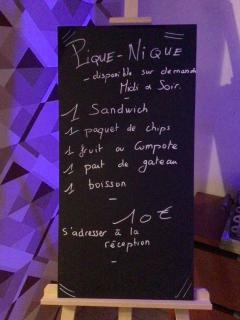 Pique-Nique
- disponible sur demande
Midi & Soir.
1 Sandwich
1 paquet de chips
1 fruit ou Compote
1 part de gateau
1 boisson
-
10€
S'adresser à la
réception
-